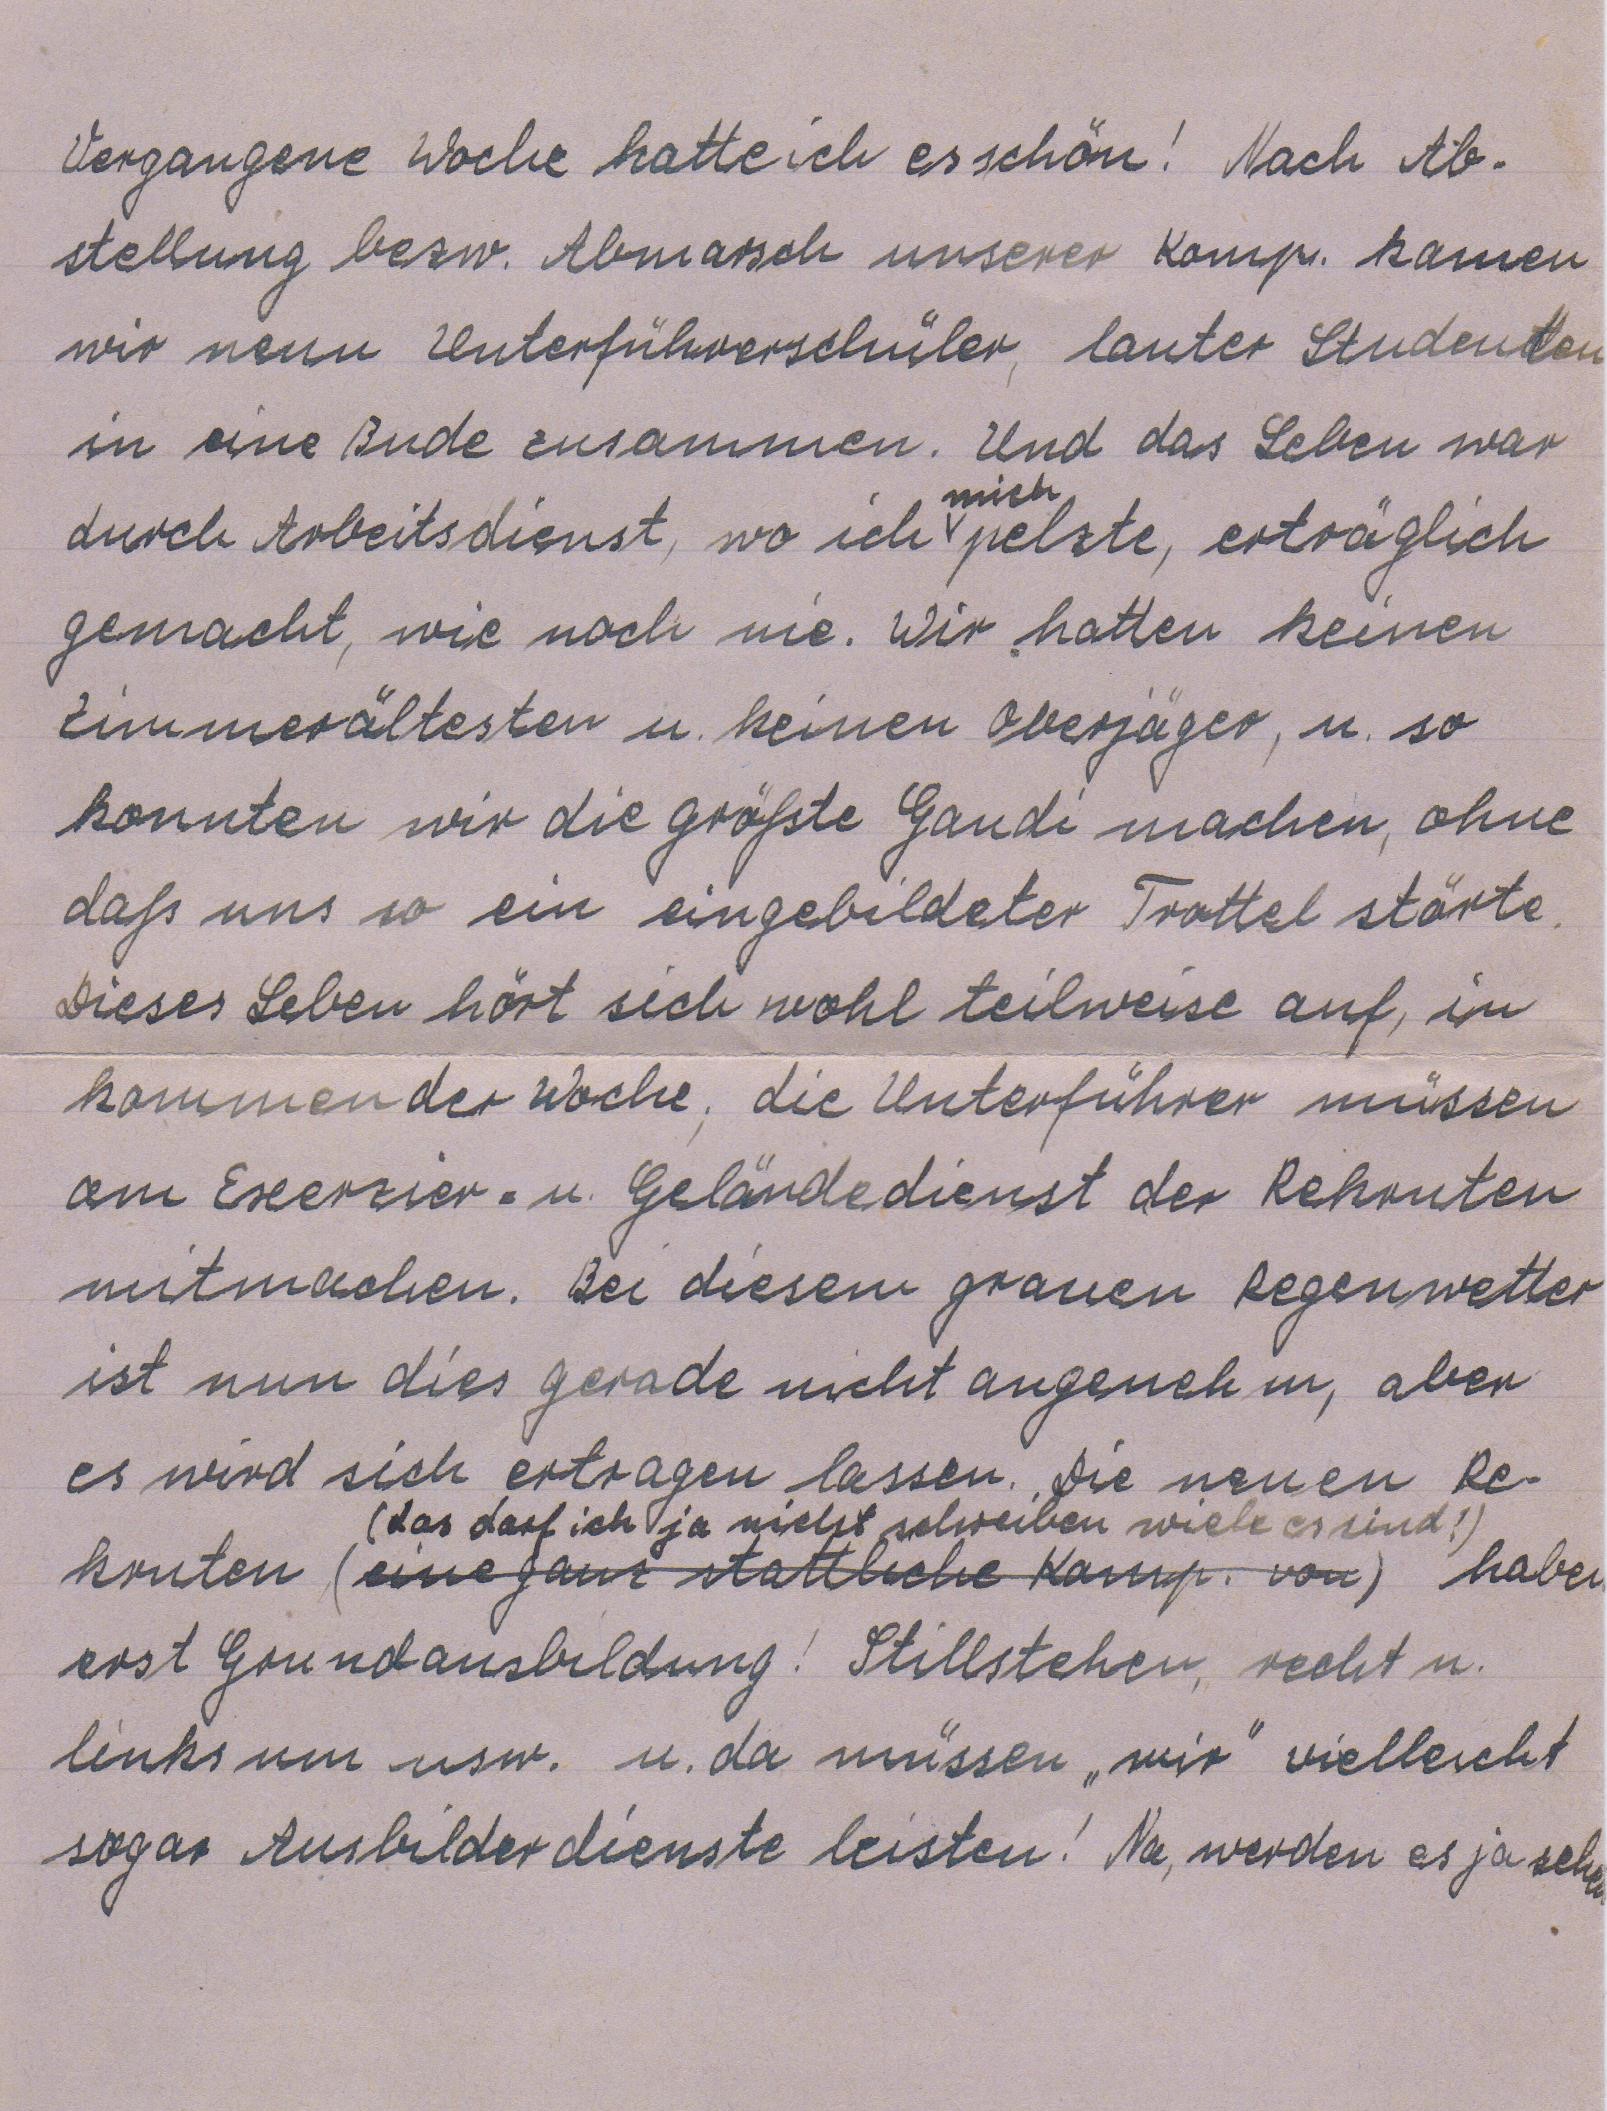 Vergangene Woche hatte ich es schön! Nach Ab-
stellung bezw. Abmarsch unserer Komp. kamen
wir neun Unterführerschüler, lauter Studenten
in eine Bude zusammen. Und das Leben war
mich
durch Arbeitsdienst, wo ich pelzte, erträglich
gemacht, wie noch nie. Wir hatten keinen
Zimmerältesten u. keinen Oberjäger, u. so
konnten wir die größte Gaudi machen, ohne
daß uns so ein eingebildeter Trottel störte.
Dieses Leben hört sich wohl teilweise auf, in
kommender Woche, die Unterführer müssen
am Exerzier- u. Geländedienst der Rekruten
mitmachen. Bei diesem grauen Regenwetter
ist nun dies gerade nicht angenehm, aber
es wird sich ertragen lassen. Die neuen Re-
(das darf ich ja nicht schreiben wiele es sind!)
kruten (eine ganz stattliche Komp. von) haben
erst Grundausbildung! Stillstehen, recht u.
links um usw. u. da müssen „wir" vielleicht
sogar Ausbilderdienste leisten! Na, werden es ja sehen.